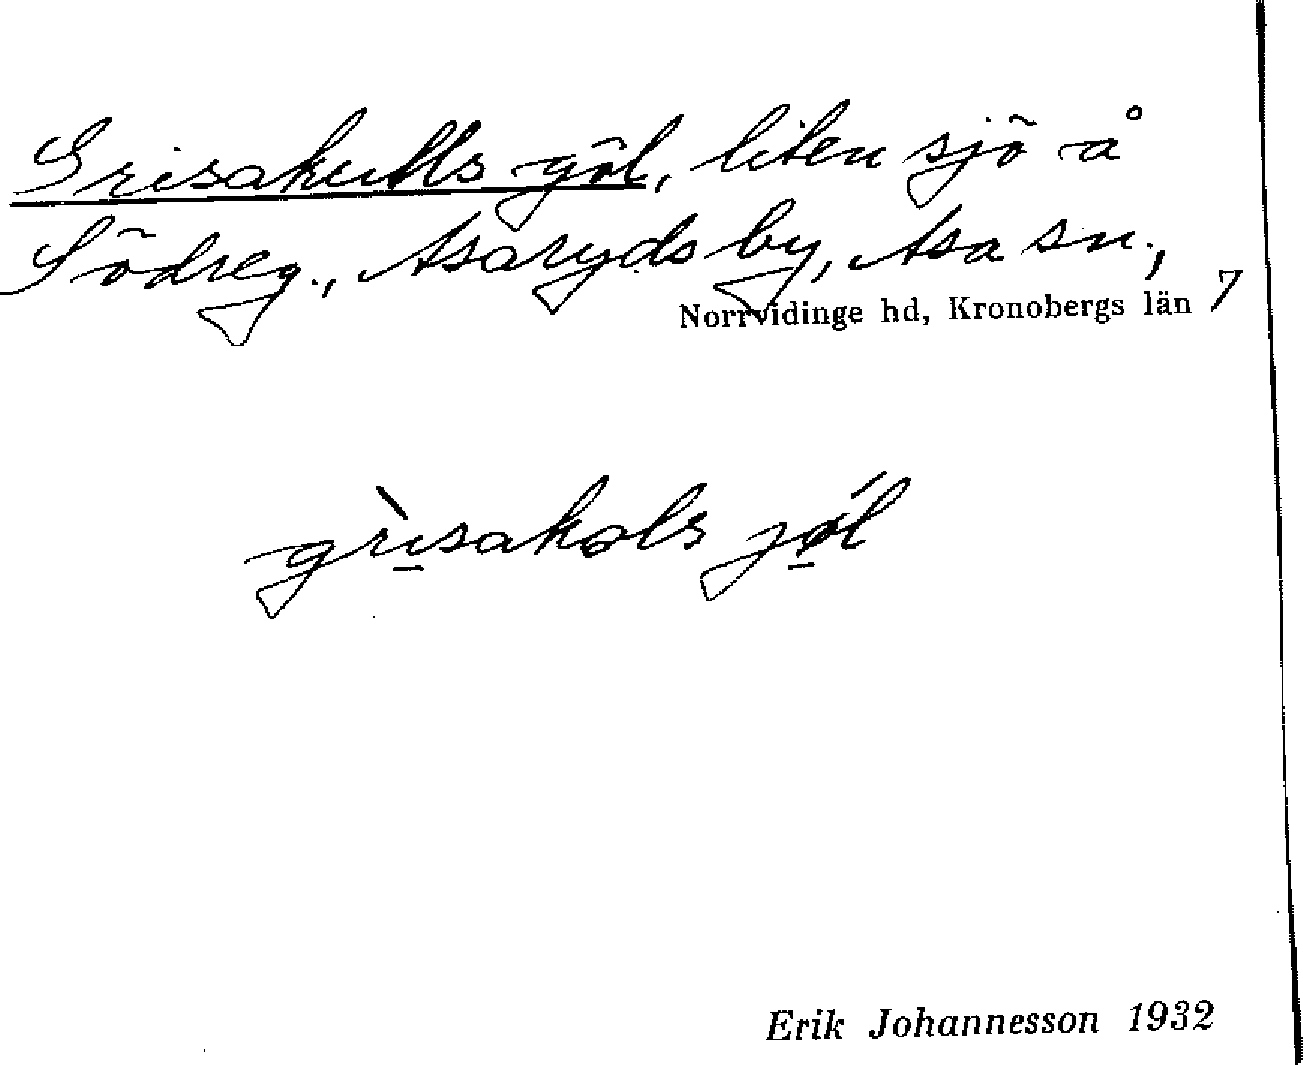 Grisakulls göl, liten sjö å
Södreg., Asaryds by, Asa sn.,
Norrvidinge hd, Kronobergs län 7
grìsakøls jǿl
Erik Johannesson 1932